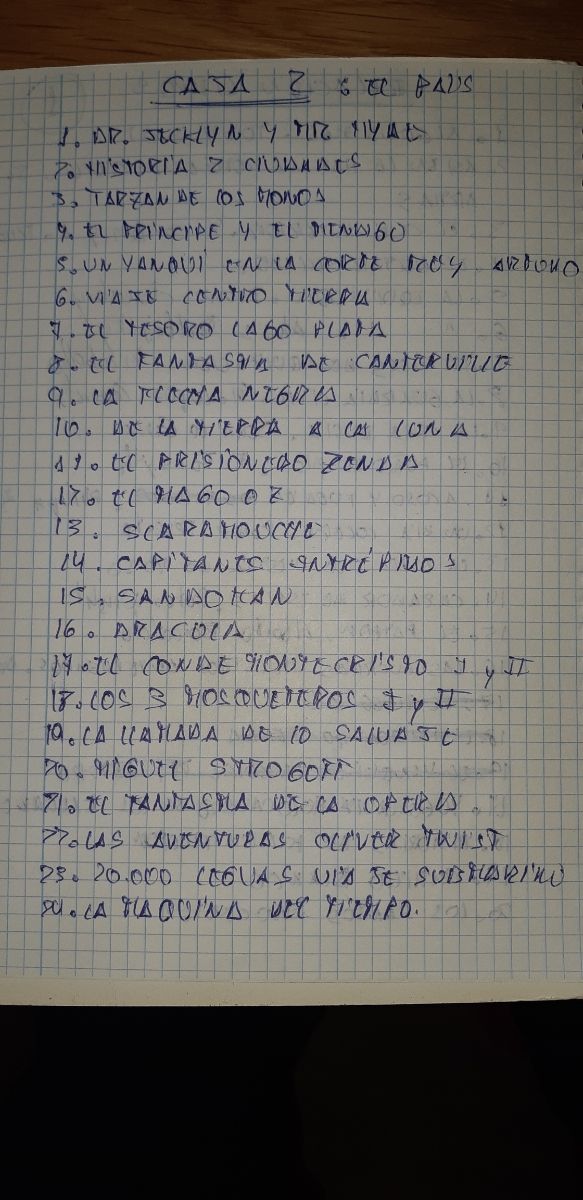 CAJA 2 : EL PAIS
1. DR. JECKLYN Y MR HYDE
2. HISTORIA 2 CIUDADES
3. TARZAN DE LOS MONOS
4. EL PRINCIPE Y EL MENDIGO
5. UN YANQUI EN LA CORTE REY ARTURO
6. VIAJE CENTRO TIERRA
7. EL TESORO LAGO PLATA
8. EL FANTASMA DE CANTERVILLE
9. LA FLECHA NEGRA
10. DE LA TIERRA A LA LUNA
11. EL PRISIONERO ZENDA
12. EL MAGO OZ
13. SCARAMOUCHE
14. CAPITANES INTRÉPIDOS
15. SANDOKAN
16. DRACULA
17. EL CONDE MONTECRISTO I y II
18. LOS 3 MOSQUETEROS I y II
19. LA LLAMADA DE LO SALVAJE
20. MIGUEL STROGOFF
21. EL FANTASMA DE LA OPERA.
22. LAS AVENTURAS OLIVER TWIST
23. 20.000 LEGUAS VIAJE SUBMARINO
24. LA MAQUINA DEL TIEMPO.